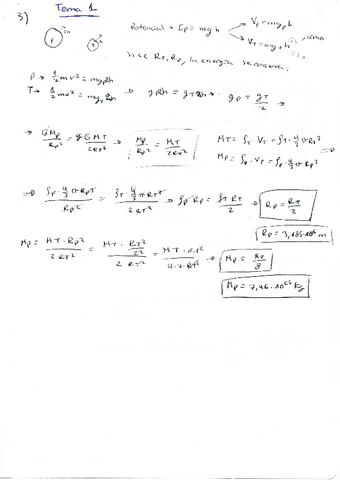 Tema 1
3)
P 2h T h
Potencial → Ep = mgh
Vp = m gp h
VT = m gT h
, como
h << RT, Rp, la energía se conserva:
P → 1/2 mv² = m gp 2h
T → 1/2 mv² = m gT h
⇒ gp 2h = gT h ⇒ gp = gT/2 →
→ G Mp/Rp² = G MT/2RT² ⇒ Mp/Rp² = MT/2RT²
MT = ρT · VT = ρT · 4/3 π RT³
Mp = ρp · Vp = ρp · 4/3 π Rp³ ⇒
⇒ ρp · 4/3 π Rp³/Rp² = ρT · 4/3 π RT³/2RT² → ρp Rp = ρT RT/2 → Rp = RT/2
Rp = 3,185·10⁶ m
Mp = MT · Rp²/2RT² = MT · RT²/2²/2RT² = MT · RT²/4·2·RT² → Mp = MT/8
Mp = 7,46 · 10²³ kg